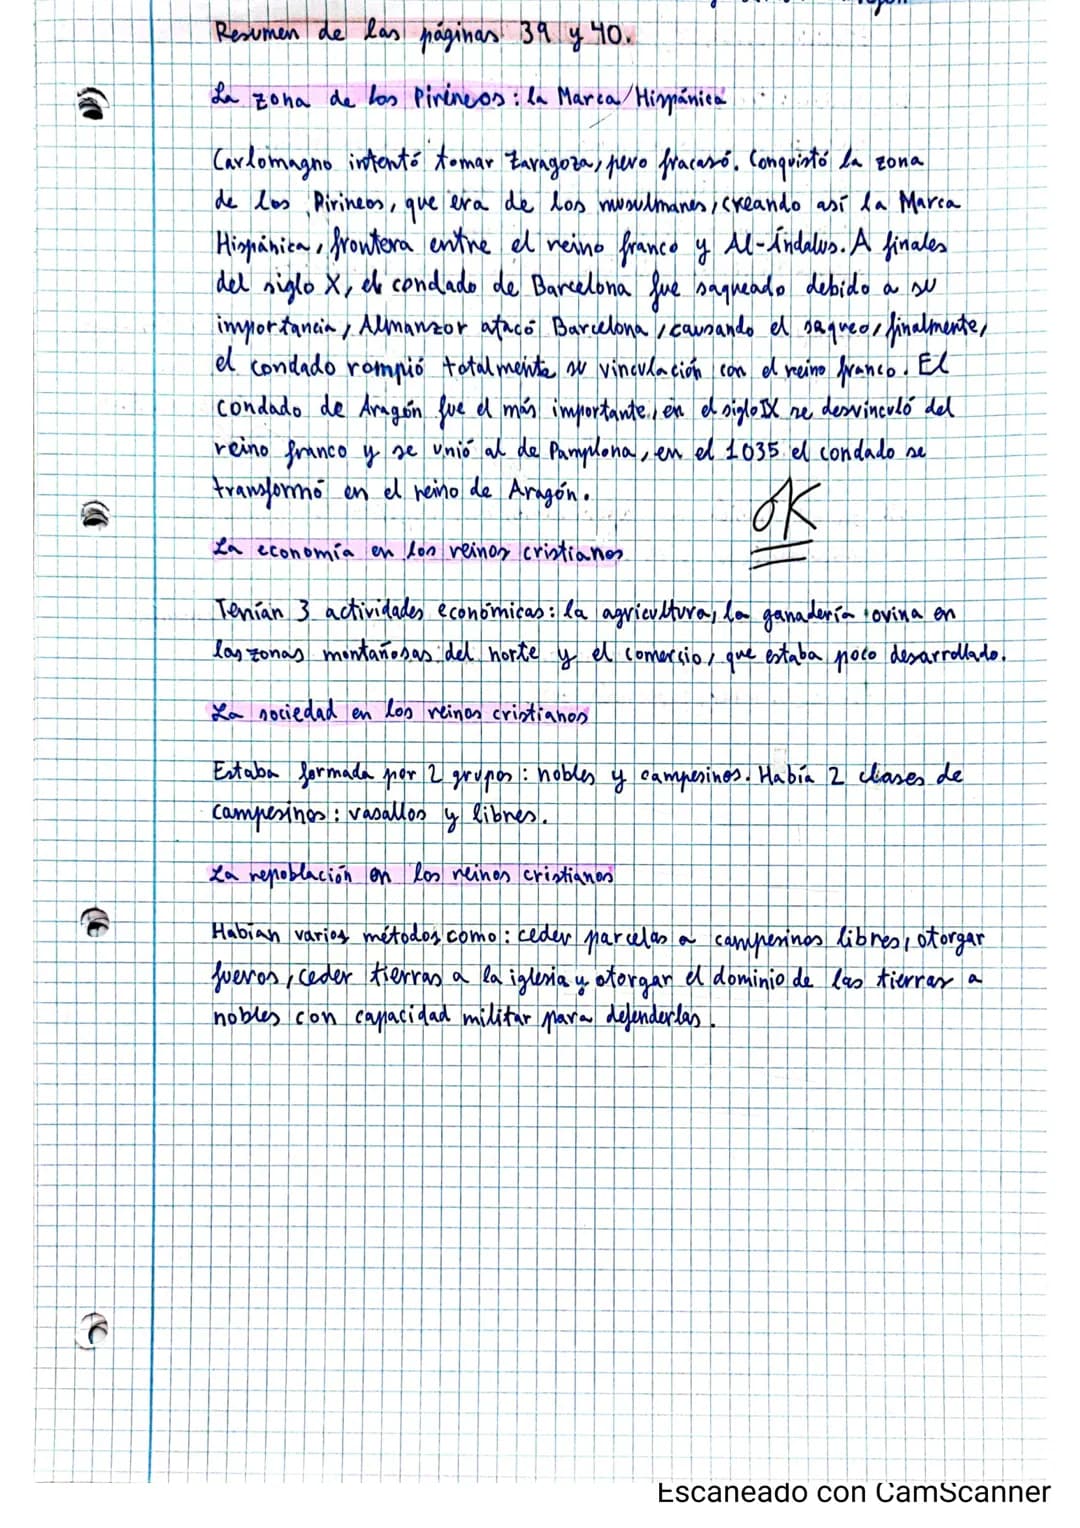 Resumen de las páginas 39 y 40.
La zona de los Pirineos: la Marca Hispánica
Carlomagno intentó tomar Zaragoza, pero fracasó. Conquistó la zona
de los Pirineos, que era de los musulmanes, creando así la Marca
Hispánica, frontera entre el reino franco y Al-Ándalus. A finales
del siglo X, el condado de Barcelona fue saqueado debido a su
importancia, Almanzor atacó Barcelona, causando el saqueo, finalmente,
el condado rompió totalmente su vinculación con el reino franco. El
condado de Aragón fue el más importante, en el siglo IX se desvinculó del
reino franco y se unió al de Pamplona, en el 1035 el condado se
transformó en el reino de Aragón.
OK
La economía en los reinos cristianos
Tenían 3 actividades económicas: la agricultura, la ganadería ovina en
las zonas montañosas del norte y el comercio, que estaba poco desarrollado.
La sociedad en los reinos cristianos
Estaba formada por 2 grupos: nobles y campesinos. Había 2 clases de
campesinos: vasallos y libres.
La repoblación en los reinos cristianos
Habían varios métodos como: ceder parcelas a campesinos libres, otorgar
fueros, ceder tierras a la iglesia y otorgar el dominio de las tierras a
nobles con capacidad militar para defenderlas.
Escaneado con CamScanner